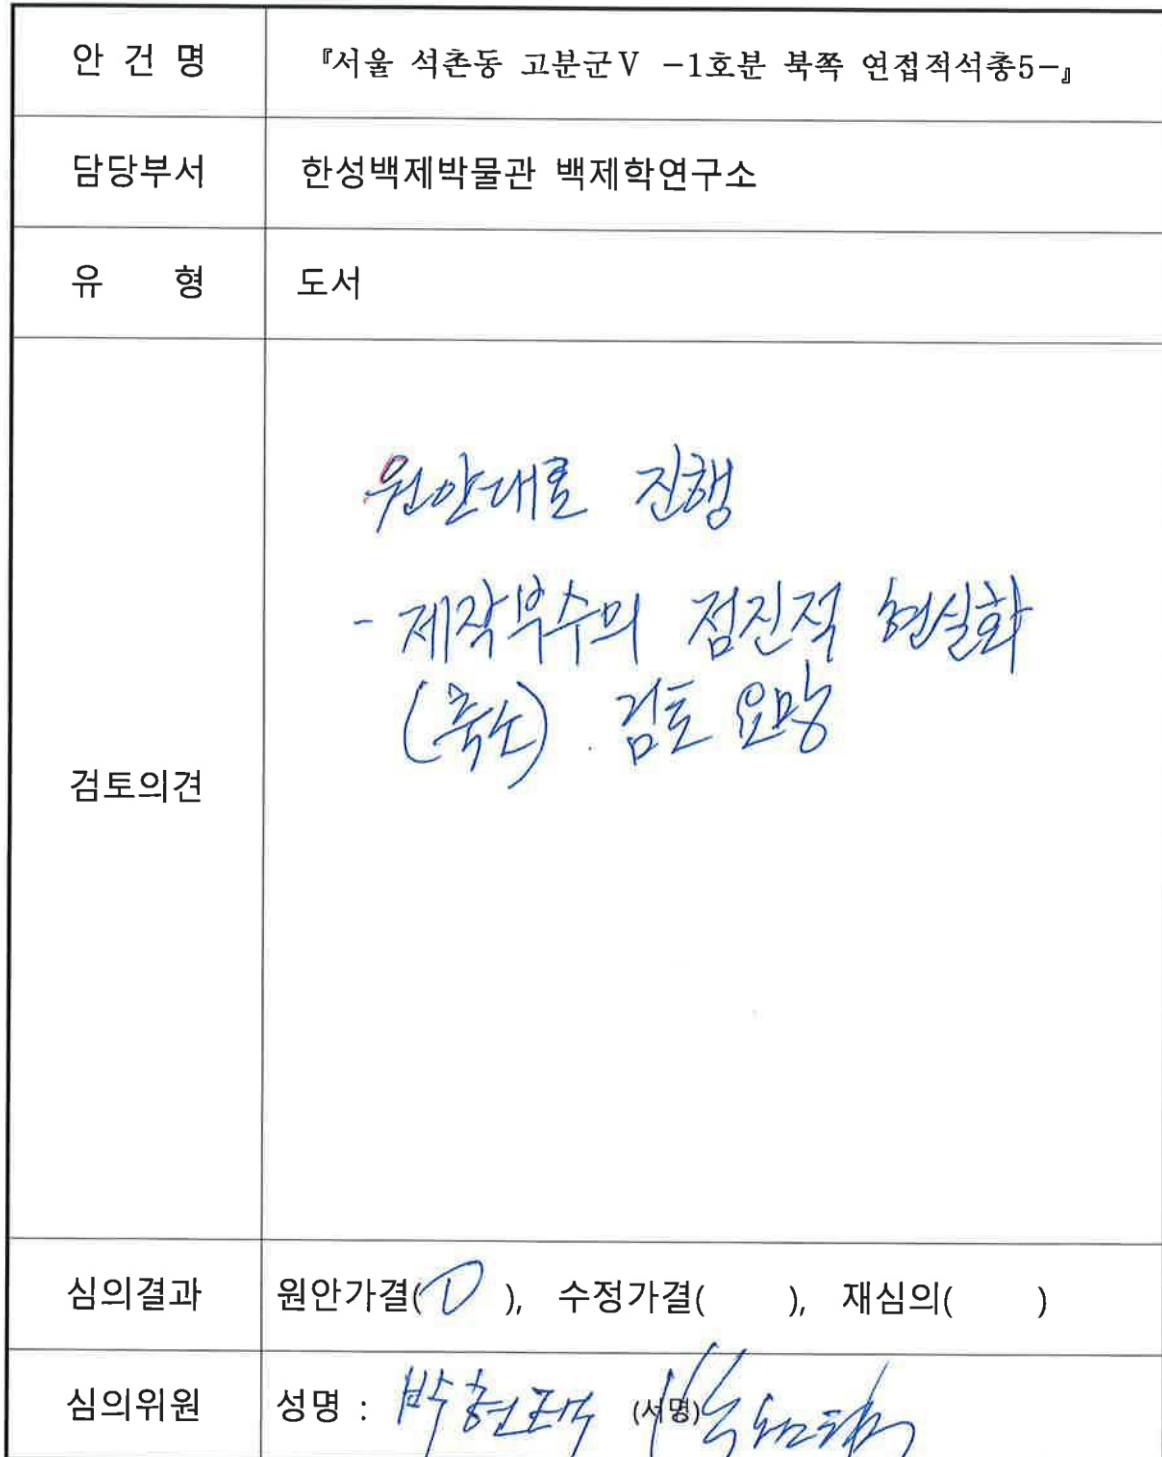 안 건 명 『서울 석촌동 고분군Ⅴ -1호분 북쪽 연접적석총5-』
담당부서 한성백제박물관 백제학연구소
유 형 도서
검토의견
원안대로 진행
- 제작부수의 점진적 현실화
(축소). 검토 요망
심의결과 원안가결( ), 수정가결( ), 재심의( )
심의위원 성명 : 박현택 (서명)